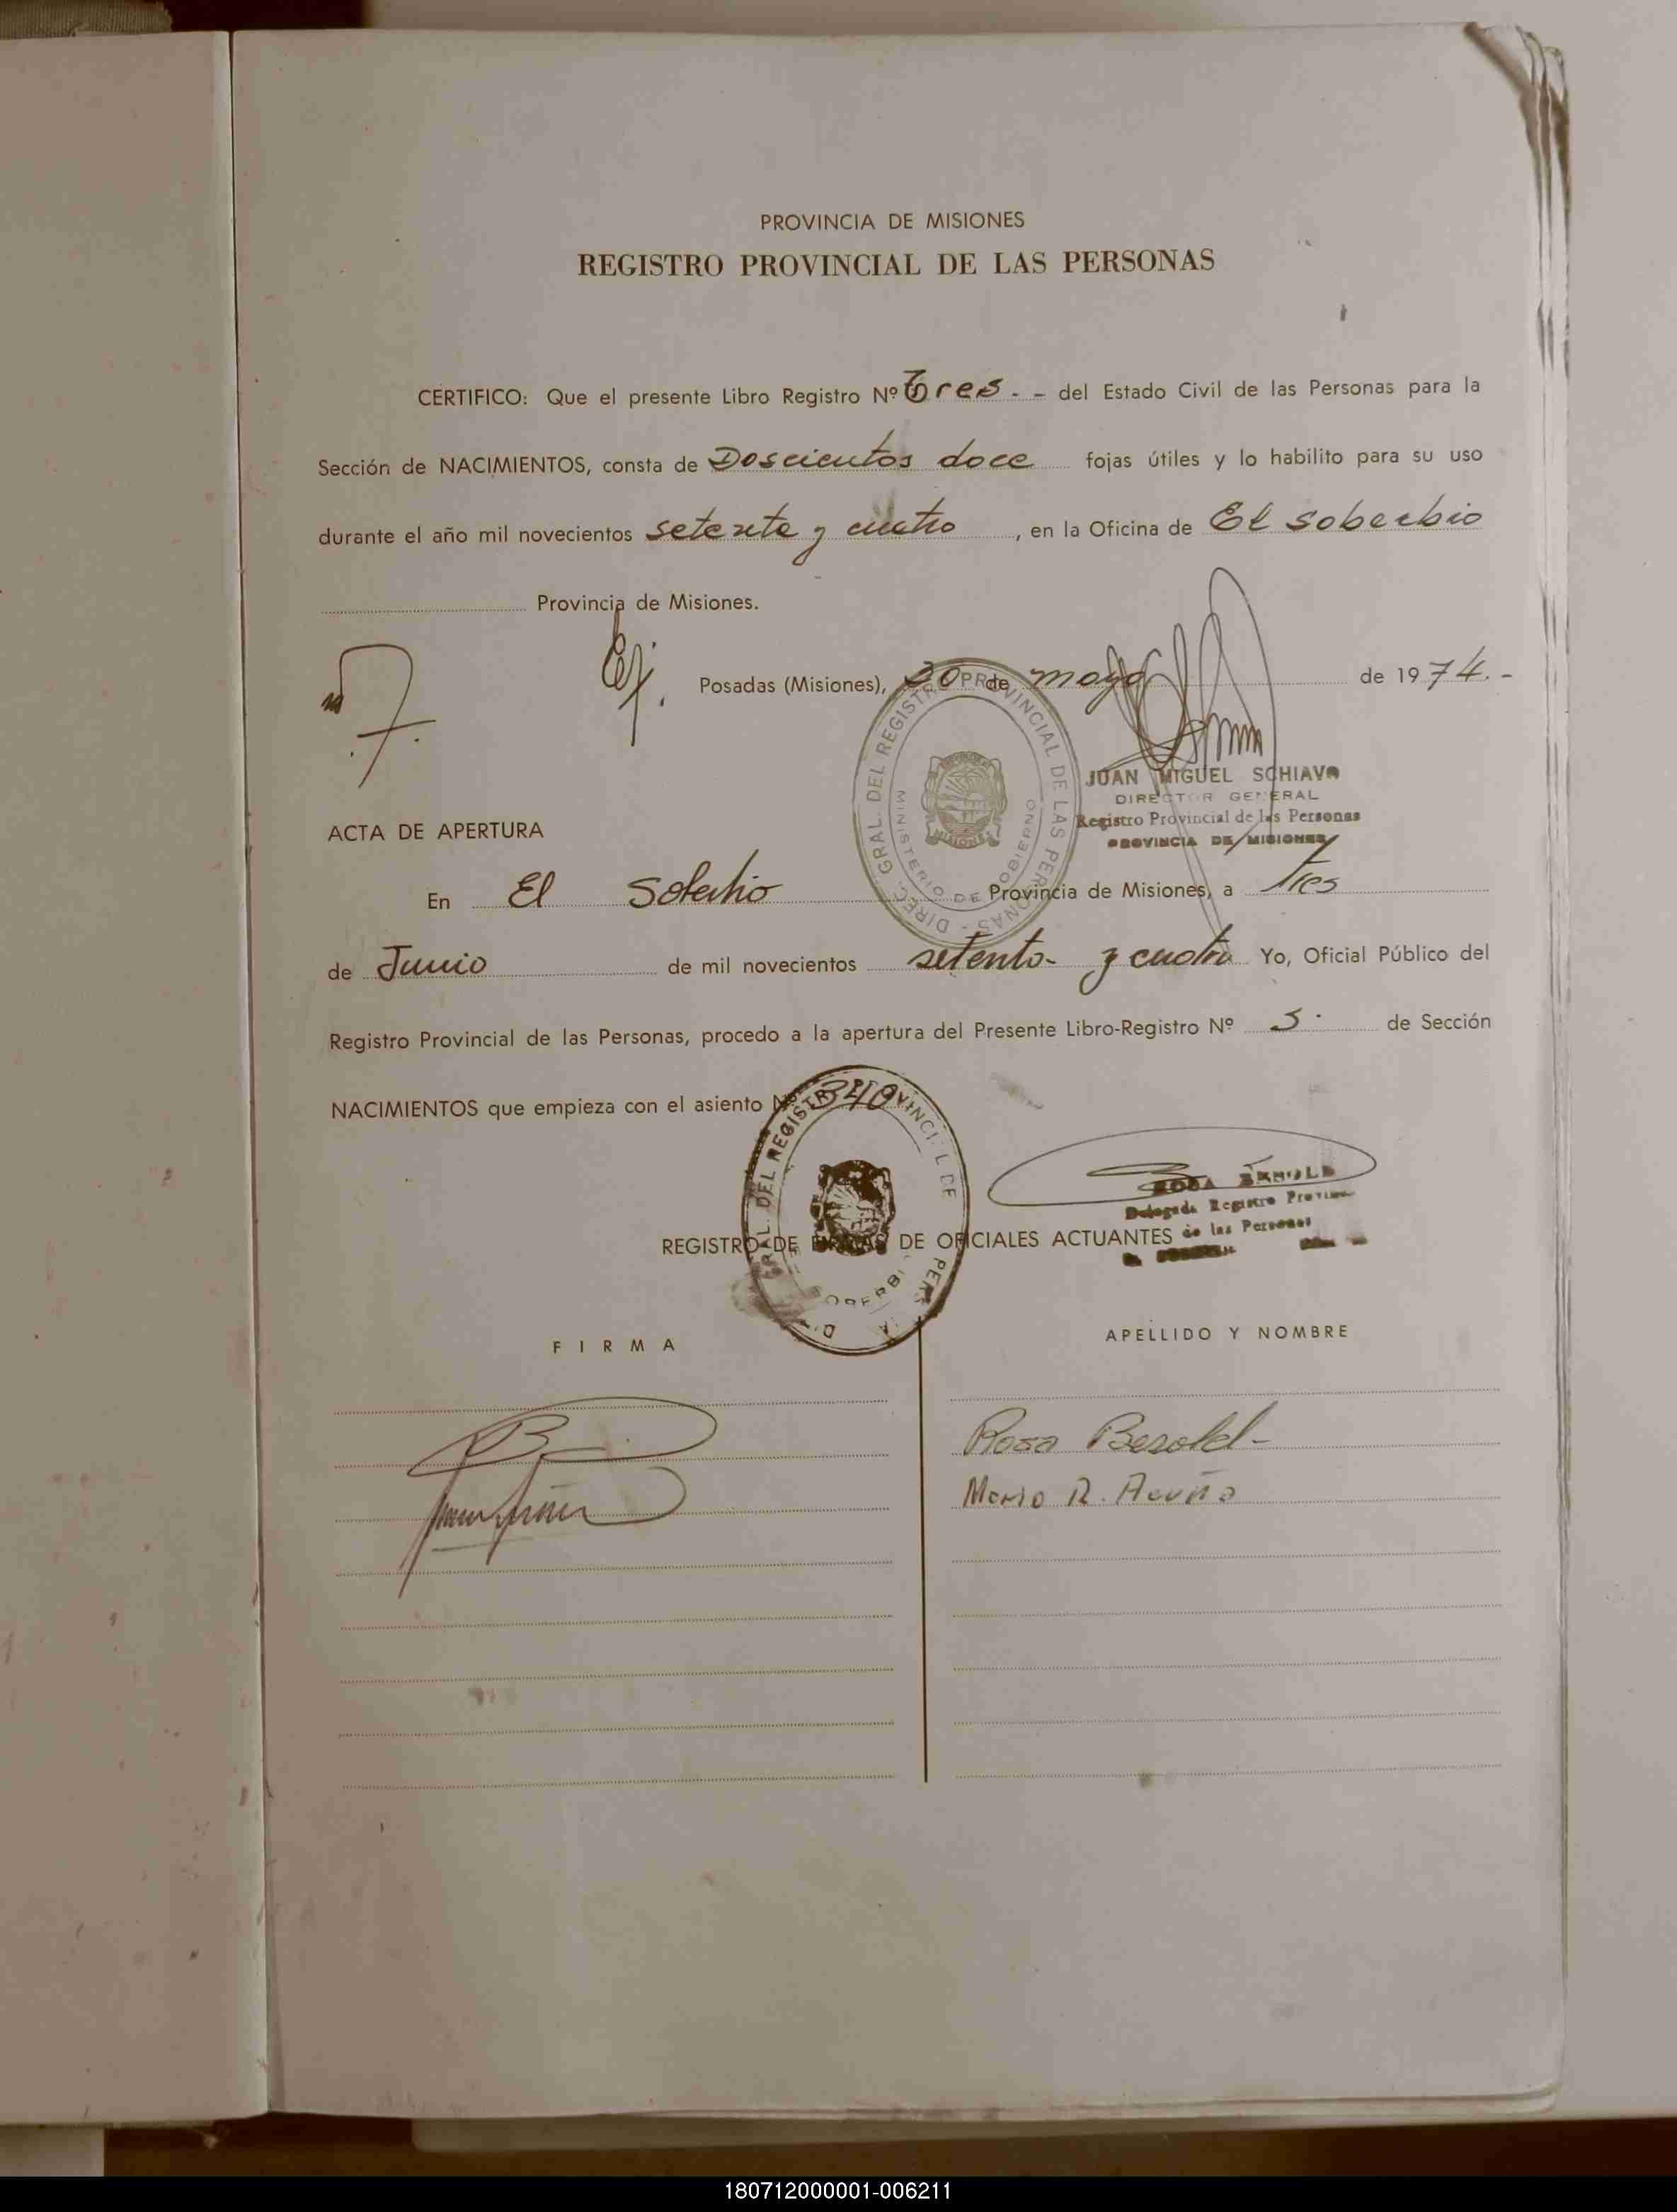 PROVINCIA DE MISIONES
REGISTRO PROVINCIAL DE LAS PERSONAS
CERTIFICO: Que el presente Libro Registro Nº Tres. - del Estado Civil de las Personas para la
Sección de NACIMIENTOS, consta de Doscientos doce fojas útiles y lo habilito para su uso
durante el año mil novecientos setenta y cuatro, en la Oficina de El soberbio
Provincia de Misiones.
Posadas (Misiones), 20 de mayo de 1974.-
DIREC. GRAL. DEL REGISTRO PROVINCIAL DE LAS PERSONAS -
MINISTERIO DE GOBIERNO
MISIONES
JUAN MIGUEL SCHIAVO
DIRECTOR GENERAL
Registro Provincial de las Personas
PROVINCIA DE MISIONES
ACTA DE APERTURA
En El Soberbio Provincia de Misiones, a tres
de Junio de mil novecientos setenta y cuatro Yo, Oficial Público del
Registro Provincial de las Personas, procedo a la apertura del Presente Libro-Registro Nº de Sección
NACIMIENTOS que empieza con el asiento Nº 340
GRAL. DEL REGISTR VINCI L DE PERS
ROSA
Delegada Registro Provin
de las Personas
REGISTRO DE FIRMAS DE OFICIALES ACTUANTES
FIRMA
APELLIDO Y NOMBRE
Rosa Bezold-
Mario R. Acuña
180712000001-006211